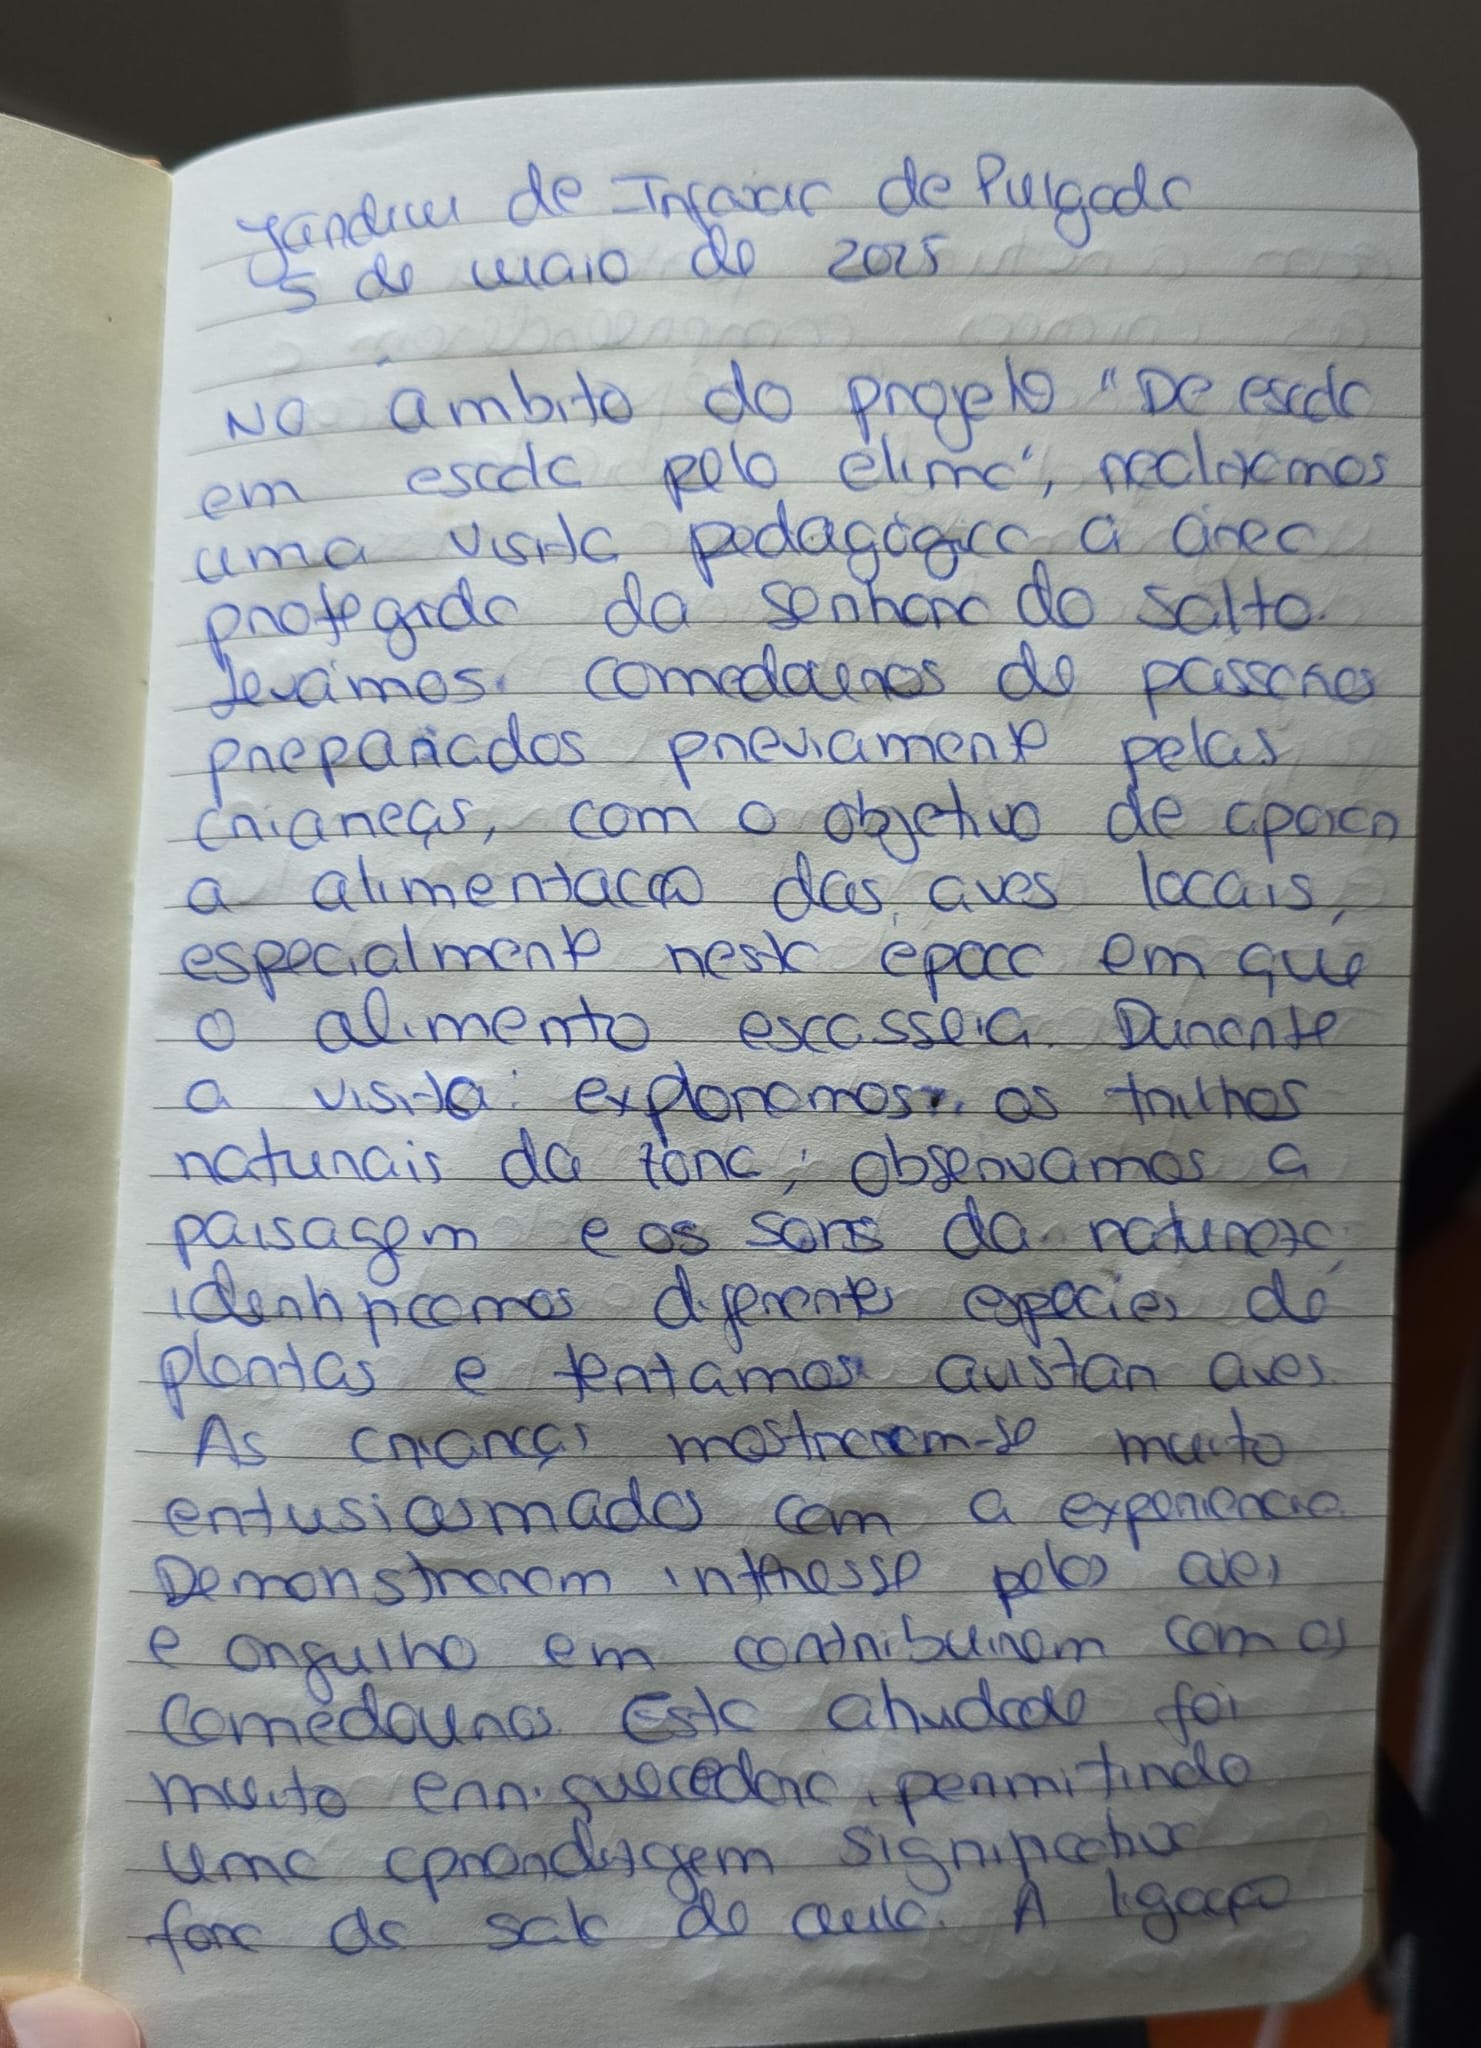 Jardim de Infância de Pulgada
5 de maio de 2025
No âmbito do projeto "De escola
em escola pelo clima", realizamos
uma visita pedagógica à área
protegida da Senhora do Salto.
Levámos comedouros de pássaros
preparados previamente pelas
crianças, com o objetivo de apoiar
a alimentação das aves locais,
especialmente nesta época em que
o alimento escasseia. Durante
a visita exploramos os trilhos
naturais da zona, observamos a
paisagem e os sons da natureza,
identificamos diferentes espécies de
plantas e tentamos avistar aves.
As crianças mostraram-se muito
entusiasmadas com a experiência.
Demonstraram interesse pelas aves
e orgulho em contribuirem com os
comedouros. Esta atividade foi
muito enriquecedora, permitindo
uma aprendizagem significativa
fora da sala de aula. A ligação